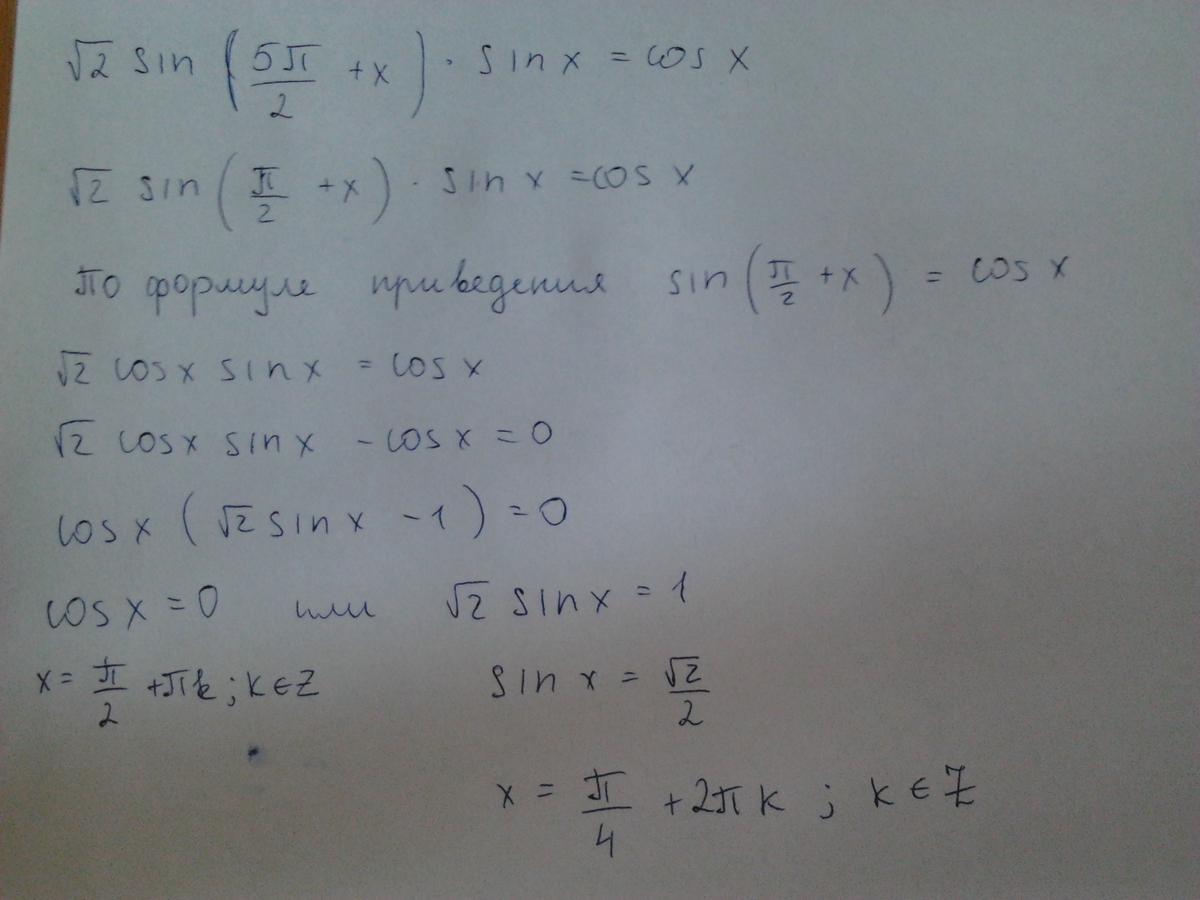 √2 sin (5π/2 + x) · sin x = cos x
√2 sin (π/2 + x) · sin x = cos x
По формуле приведения sin (π/2 + x) = cos x
√2 cos x sin x = cos x
√2 cos x sin x - cos x = 0
cos x (√2 sin x - 1) = 0
cos x = 0 или √2 sin x = 1
x = π/2 + πk; k ∈ Z sin x = √2/2
x = π/4 + 2πk; k ∈ Z